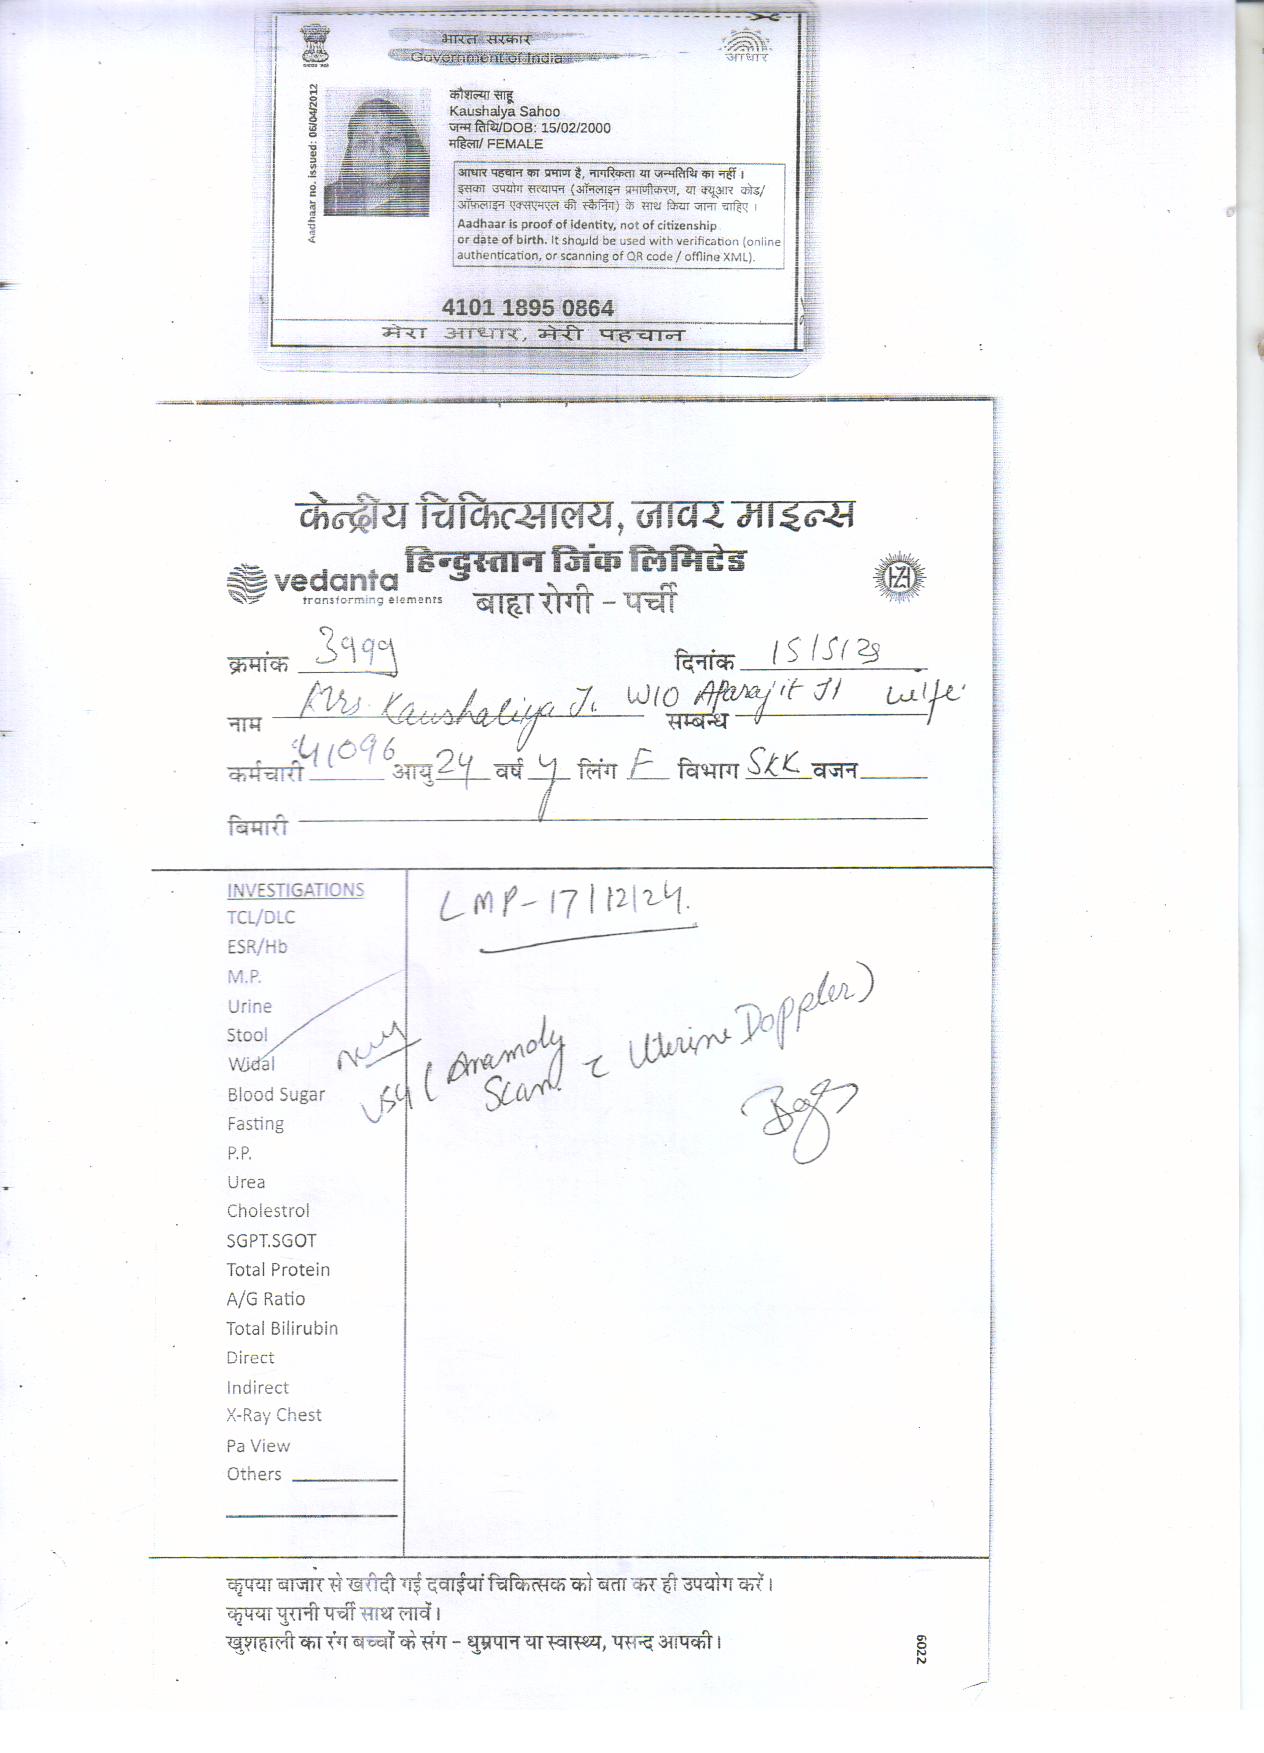 भारत सरकार
Government of India
आधार
Aadhaar no. issued: 06/04/2012
कौशल्या साहू
Kaushalya Sahoo
जन्म तिथि/DOB: 15/02/2000
महिला/ FEMALE
आधार पहचान का प्रमाण है, नागरिकता या जन्मतिथि का नहीं ।
इसका उपयोग सत्यापन (ऑनलाइन प्रमाणीकरण, या क्यूआर कोड/
ऑफ़लाइन एक्सएमएल की स्कैनिंग) के साथ किया जाना चाहिए ।
Aadhaar is proof of identity, not of citizenship
or date of birth. It should be used with verification (online
authentication, or scanning of QR code / offline XML).
4101 1895 0864
मेरा आधार, मेरी पहचान
केन्द्रीय चिकित्सालय, जावर माइन्स
हिन्दुस्तान जिंक लिमिटेड
vedanta
transforming elements
बाह्य रोगी - पर्ची
क्रमांक 3999 दिनांक 15/5/25
नाम Mrs. Kaushaliya Ji W/O Aparajit Ji सम्बन्ध wife
कर्मचारी 41096 आयु 24 वर्ष y लिंग F विभाग SKK वजन
बिमारी
INVESTIGATIONS
TCL/DLC
ESR/Hb
M.P.
Urine
Stool
Widal
Blood Sugar
Fasting
P.P.
Urea
Cholestrol
SGPT.SGOT
Total Protein
A/G Ratio
Total Bilirubin
Direct
Indirect
X-Ray Chest
Pa View
Others
LMP-17/12/24.
USG (Anamoly Scan c Uterine Doppler)
कृपया बाजार से खरीदी गई दवाईयां चिकित्सक को बता कर ही उपयोग करें।
कृपया पुरानी पर्ची साथ लावें।
खुशहाली का रंग बच्चों के संग - धुम्रपान या स्वास्थ्य, पसन्द आपकी।
6022